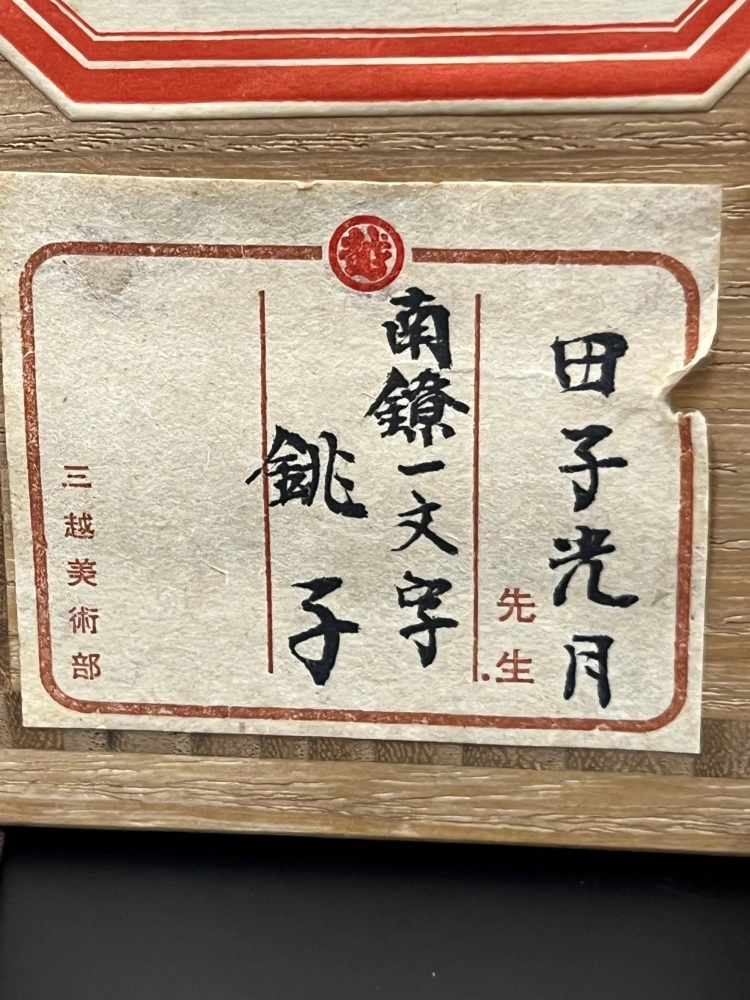 田子光月
先生
南鐐一文字
銚子
三越美術部
越